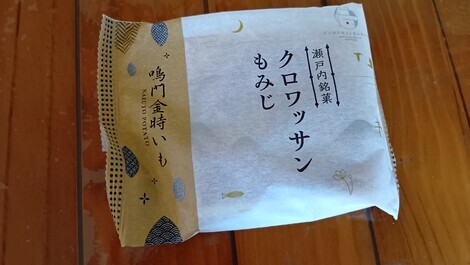 瀬戸内銘菓
クロワッサン
もみじ
鳴門金時いも
NARUTO POTATO